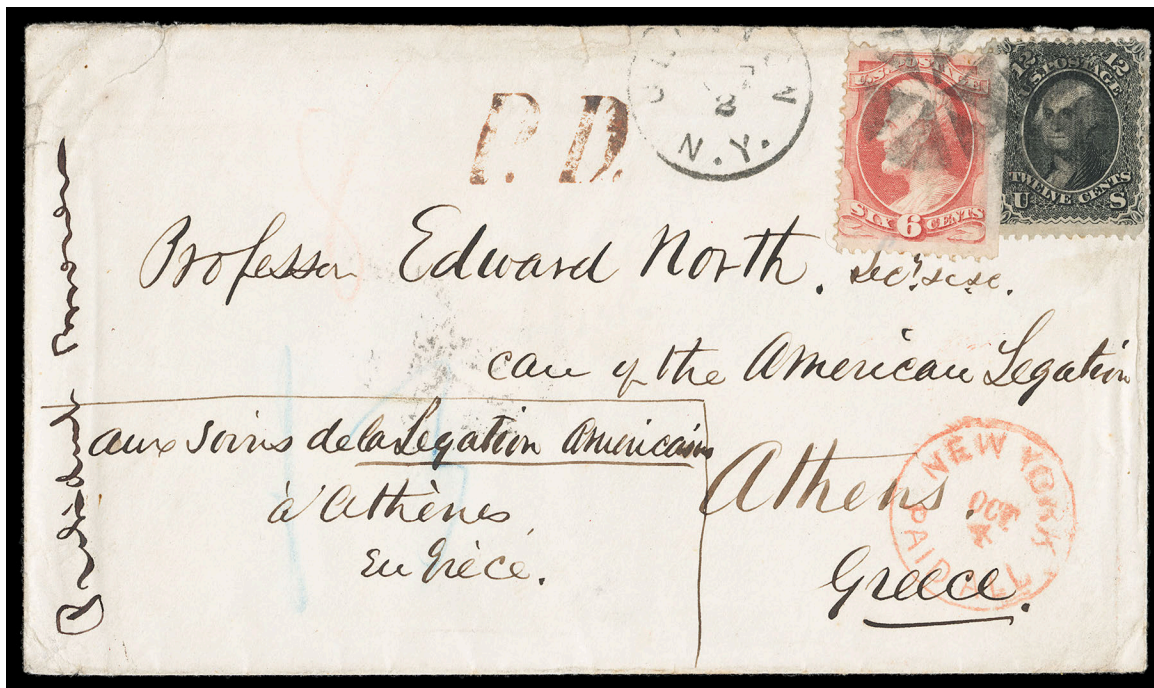 P. D.
N.Y.
U.S. POSTAGE
SIX 6 CENTS
12 12
U.S. POSTAGE
TWELVE CENTS
U S
Professor Edward North.
care of the American Legation
Athens.
Greece.
aux soins de la Legation Americaine
à Athènes
en Grèce.
NEW YORK
OCT
PAID ALL
President